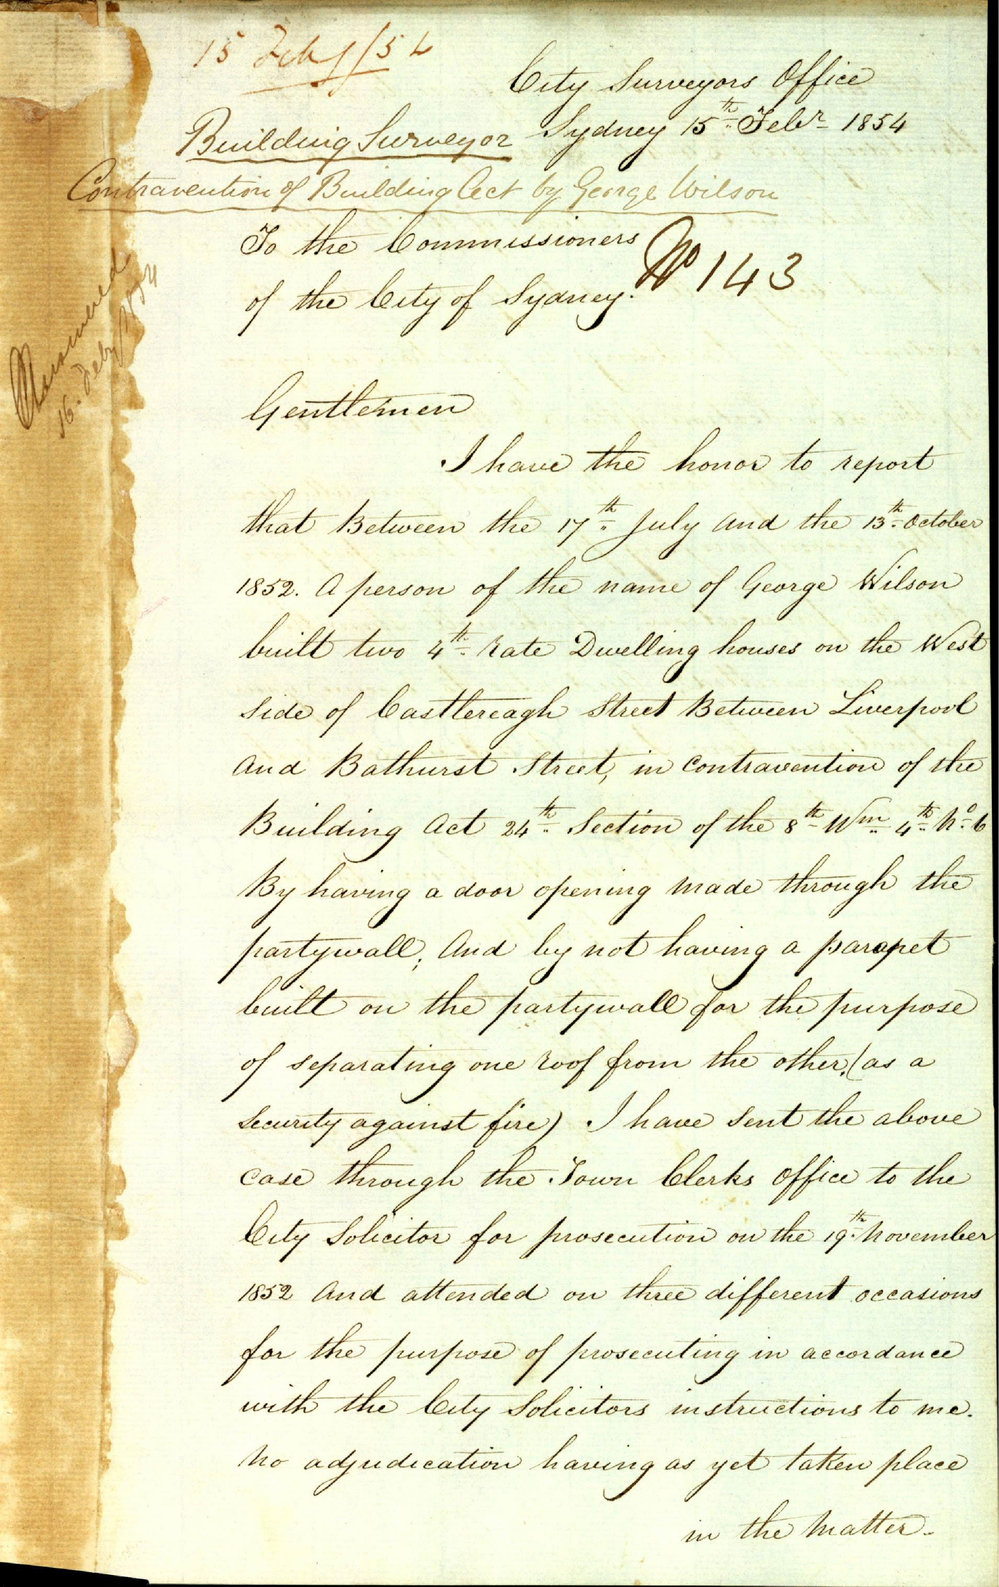 15 Feby/54
City Surveyors Office
Sydney 15th Febr 1854
Building Surveyor
Contravention of Building Act by George Wilson
To the Commissioners
of the City of Sydney.
No 143
16. Feby/1854
Gentlemen
I have the honor to report
that Between the 17th July and the 13th October
1852. A person of the name of George Wilson
built two 4th rate Dwelling houses on the West
side of Castlereagh Street Between Liverpool
And Bathurst Street, in contravention of the
Building Act 24th Section of the 8th Wm 4th No 6
By having a door opening made through the
partywall; And by not having a parapet
built on the partywall for the purpose
of separating one roof from the other, (as a
security against fire) I have sent the above
case through the Town Clerks office to the
City Solicitor for prosecution on the 19th November
1852 And attended on three different occasions
for the purpose of prosecuting in accordance
with the City Solicitors instructions to me.
No adjudication having as yet taken place
in the Matter.